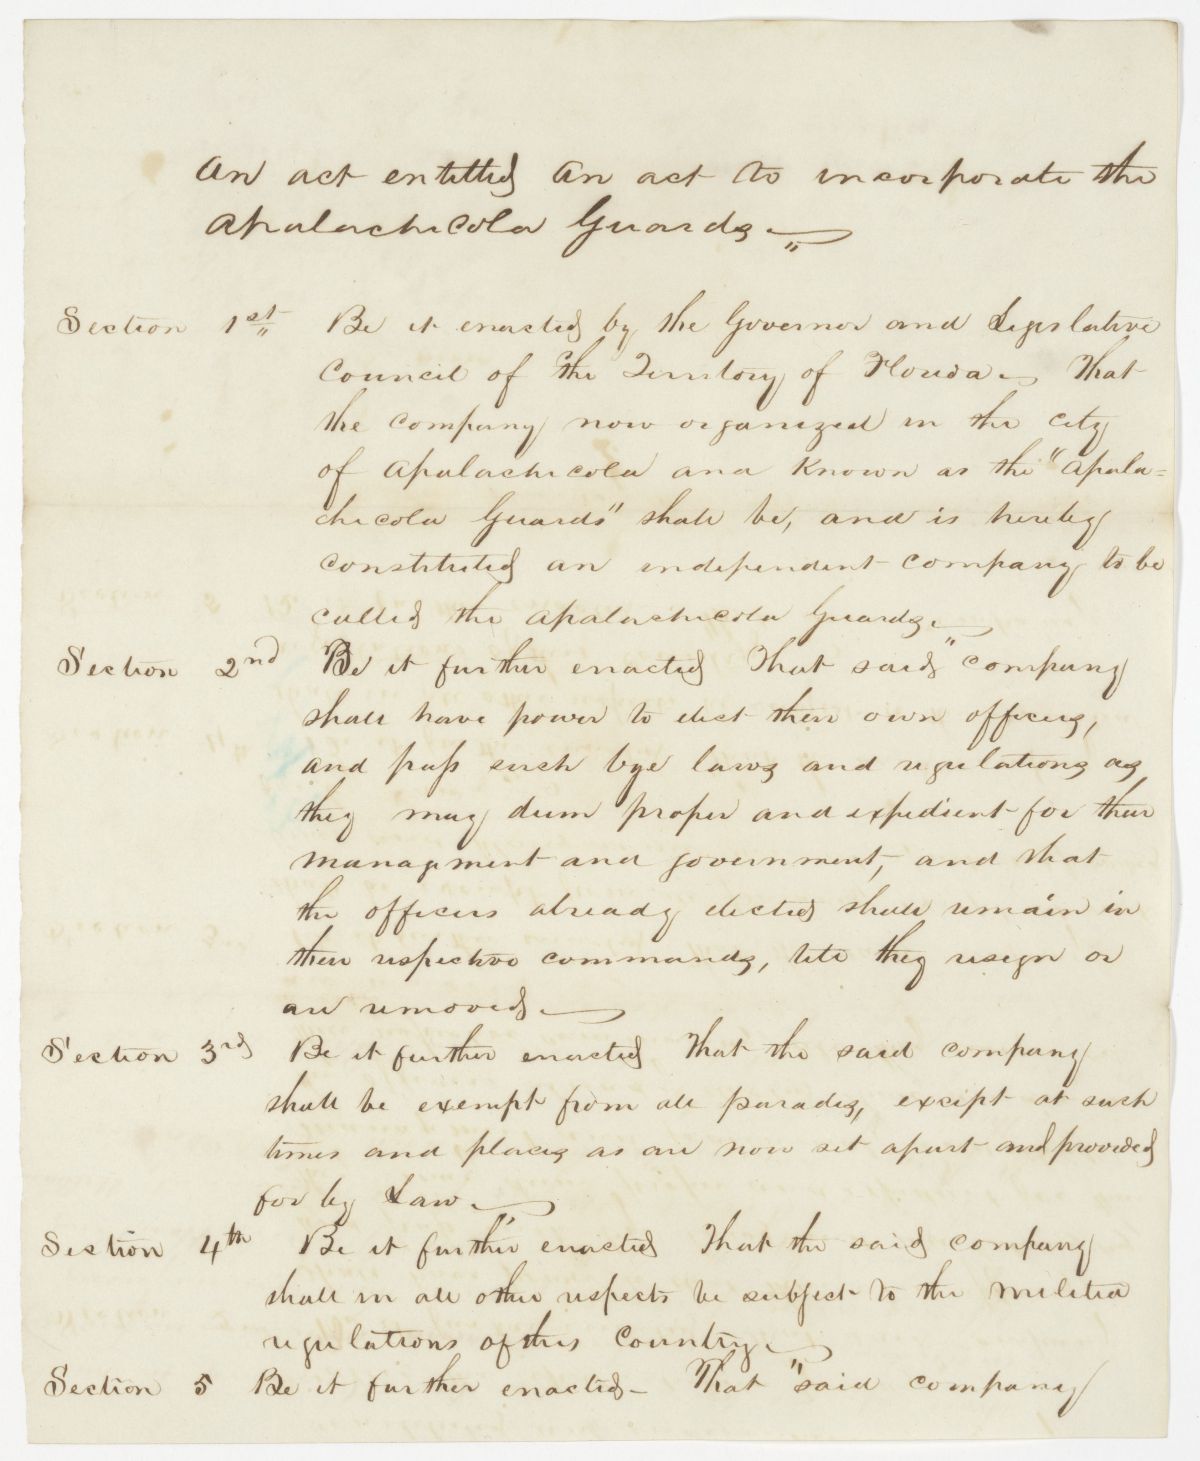 An act entitled An act to incorporate the
Apalachicola Guards.
Section 1st Be it enacted by the Governor and Legislative
Council of the Territory of Florida. That
the company now organized in the city
of Apalachicola and Known as the "Apala=
chicola Guards" shall be, and is hereby
constituted an independent company to be
called the Apalachicola Guards.
Section 2nd Be it further enacted That said company
shall have power to elect their own officers,
and pass such bye laws and regulations as
they may deem proper and expedient for their
managment and government, and that
the officers already elected shall remain in
their respective commands, till they resign or
are removed.
Section 3rd Be it further enacted That the said company
shall be exempt from all parades, except at such
times and places as are now set apart and provided
for by Law.
Section 4th Be it further enacted That the said company
shall in all other respects be subject to the militia
regulations of this Country.
Section 5 Be it further enacted - That said company